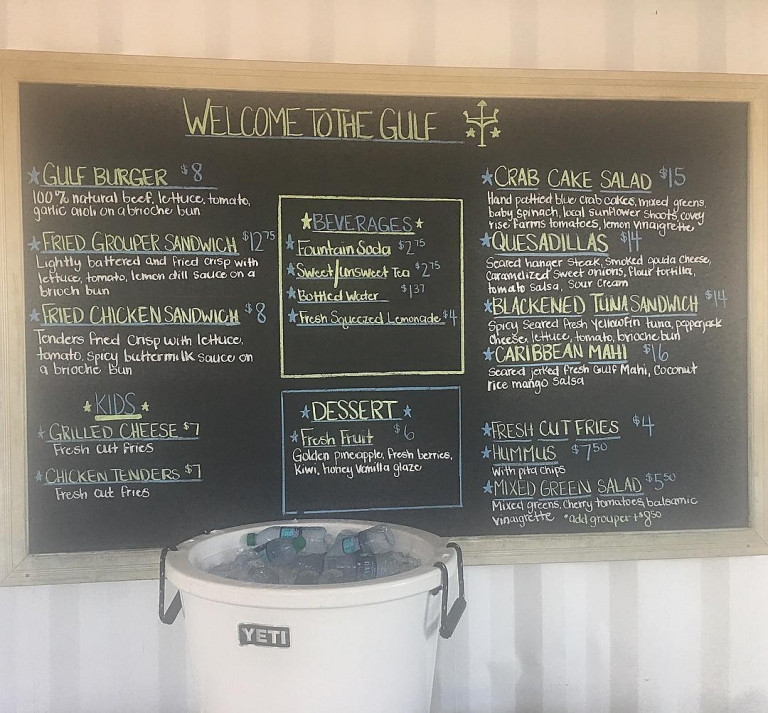 WELCOME TO THE GULF
GULF BURGER $8
100% natural beef, lettuce, tomato,
garlic aioli on a brioche bun
FRIED GROUPER SANDWICH $12.75
Lightly battered and fried crisp with
lettuce, tomato, lemon dill sauce on a
brioch bun
FRIED CHICKEN SANDWICH $8
Tenders fried crisp with lettuce,
tomato, spicy buttermilk sauce on
a brioche bun
KIDS
GRILLED CHEESE $7
Fresh cut fries
CHICKEN TENDERS $7
Fresh cut fries
BEVERAGES
Fountain Soda $2.75
Sweet/Unsweet Tea $2.75
Bottled Water $1.37
Fresh Squeezed Lemonade $4
DESSERT
Fresh Fruit $6
Golden pineapple, fresh berries,
kiwi, honey vanilla glaze
CRAB CAKE SALAD $15
Hand pattied blue crab cakes, mixed greens,
baby spinach, local sunflower shoots, covey
rise farms tomatoes, lemon vinaigrette
QUESADILLAS $14
Seared hanger steak, smoked gouda cheese,
caramelized sweet onions, flour tortilla,
tomato salsa, sour cream
BLACKENED TUNA SANDWICH $14
Spicy seared fresh yellowfin tuna, pepperjack
cheese, lettuce, tomato, brioche bun
CARIBBEAN MAHI $16
Seared jerked fresh Gulf Mahi, coconut
rice mango salsa
FRESH CUT FRIES $4
HUMMUS $7.50
with pita chips
MIXED GREEN SALAD $5.50
Mixed greens, cherry tomatoes, balsamic
vinaigrette *add grouper +$8.50
YETI